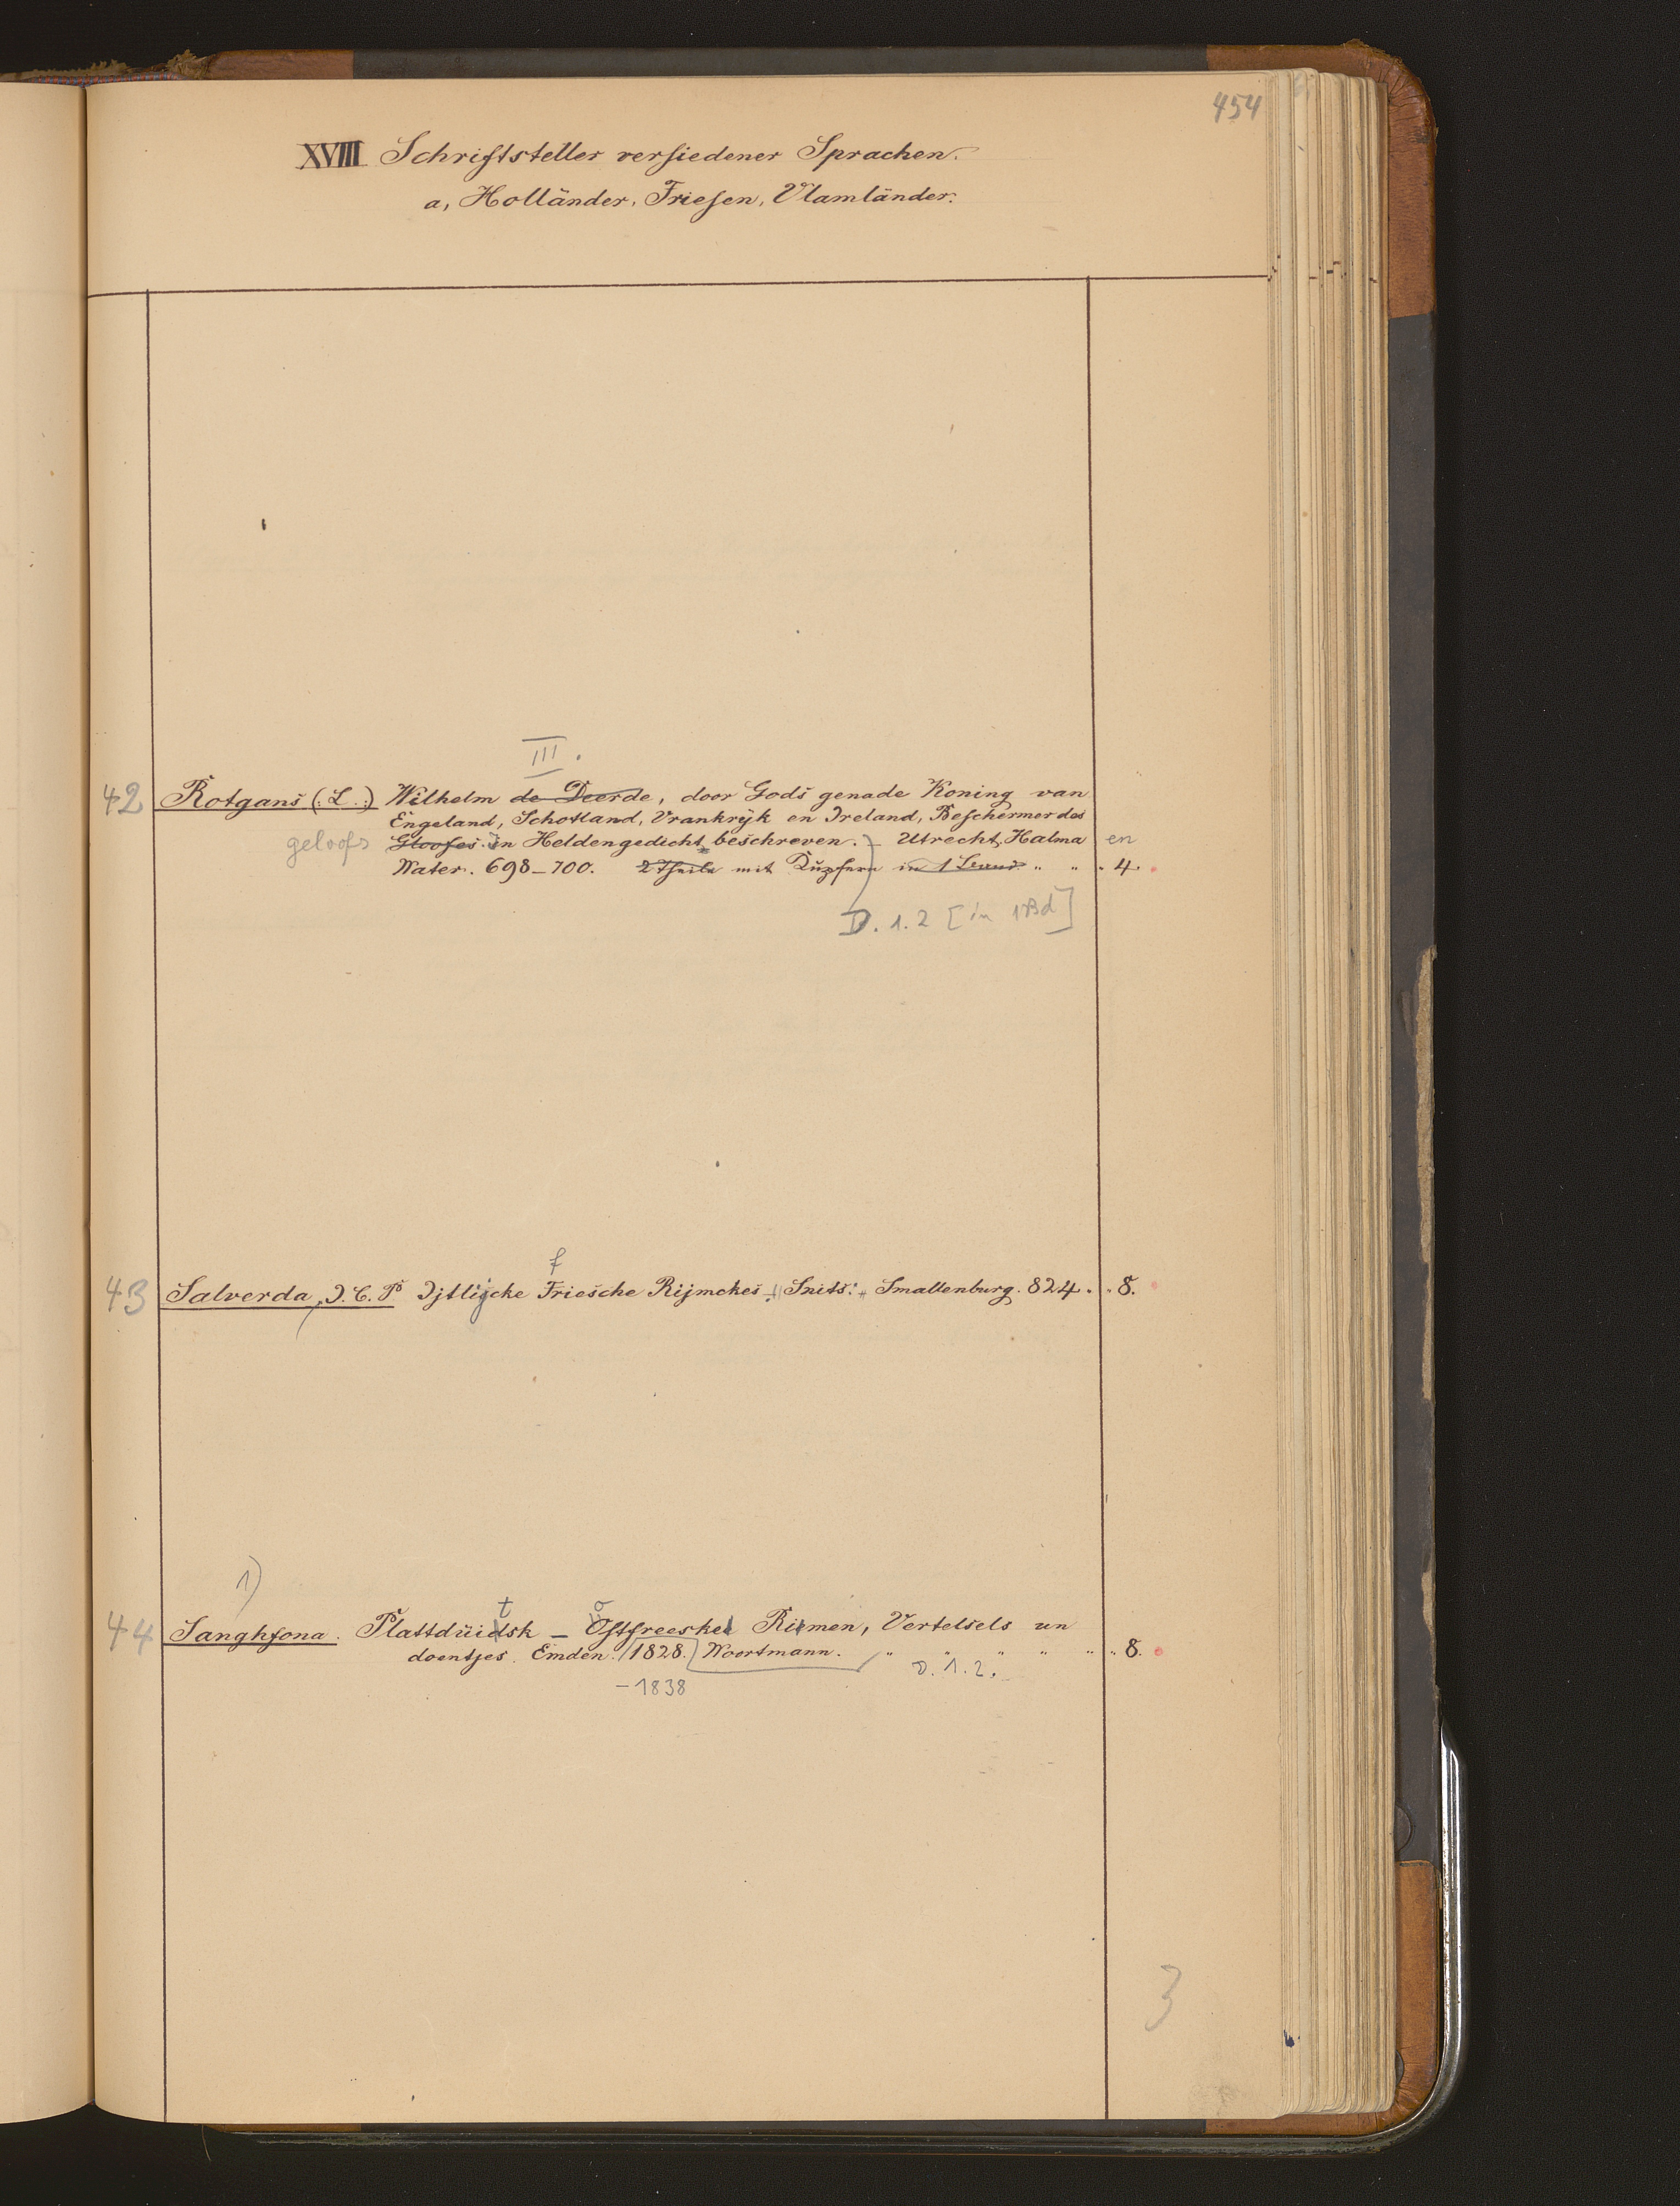 454
XVIII Schriftsteller versiedener Sprachen.
a, Holländer, Friesen, Vlamländer.
III.
42 Rotgans (: L :) Wilhelm de Deerde, door Gods genade Koning van
Engeland, Schotland, Vrankrijk en Ireland, Beschermer des
geloofs Gloofes in Heldengedicht beschreven. – Utrecht, Halma en
Water. 698–700. 2 Theile mit Kupfern in 1 Band " " " 4.
D. 1.2 [in 1 Bd]
f
43 Salverda, J. C. P Ijtlijcke Friesche Rijmckes. Snits: Smallenburg. 824. " 8.
1)
t o
44 Sanghfona. Plattdüidsk – Ostfreeske Rimen, Vertelsels un
doentjes. Emden. 1828. Woortmann. " " " " " " 8.
– 1838 D. 1.2.
3